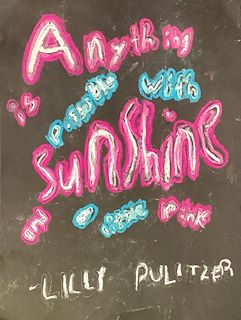 Anything
is possible with
sunshine
and a little pink
-LILLY PULITZER